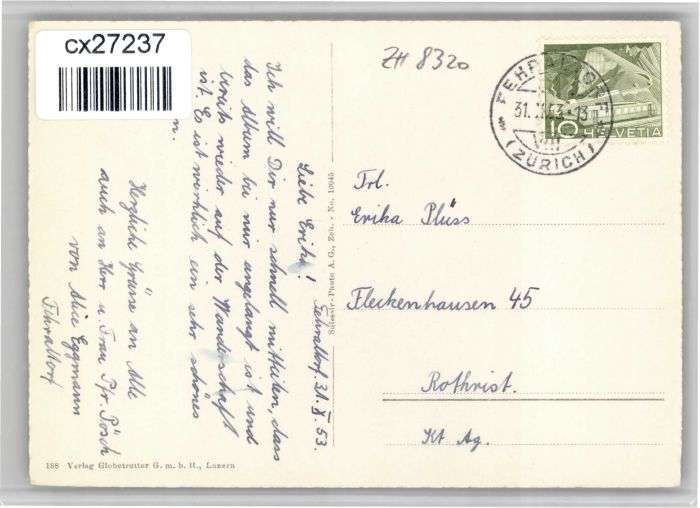 cx27237
ZH 8320
FEHRALTORF
31. X. 53-13
(ZÜRICH)
10 HELVETIA
Fehraltorf. 31. X. 53.
Liebe Erika!
Ich will Dir nur schnell mitteilen, dass
das Album bei mir angelangt ist und
bereits wieder auf der Wanderschaft
ist. Es ist wirklich ein sehr schönes
Herzliche Grüsse an Alle
auch an Herr u. Frau Pfr. Pösch
von Alice Eggmann
Fehraltorf
Photo A. G., Zch. - No. 10045
Frl.
Erika Plüss
Fleckenhausen 45
Rothrist.
Kt Ag.
198 Verlag Globetrotter G. m. b. H., Luzern